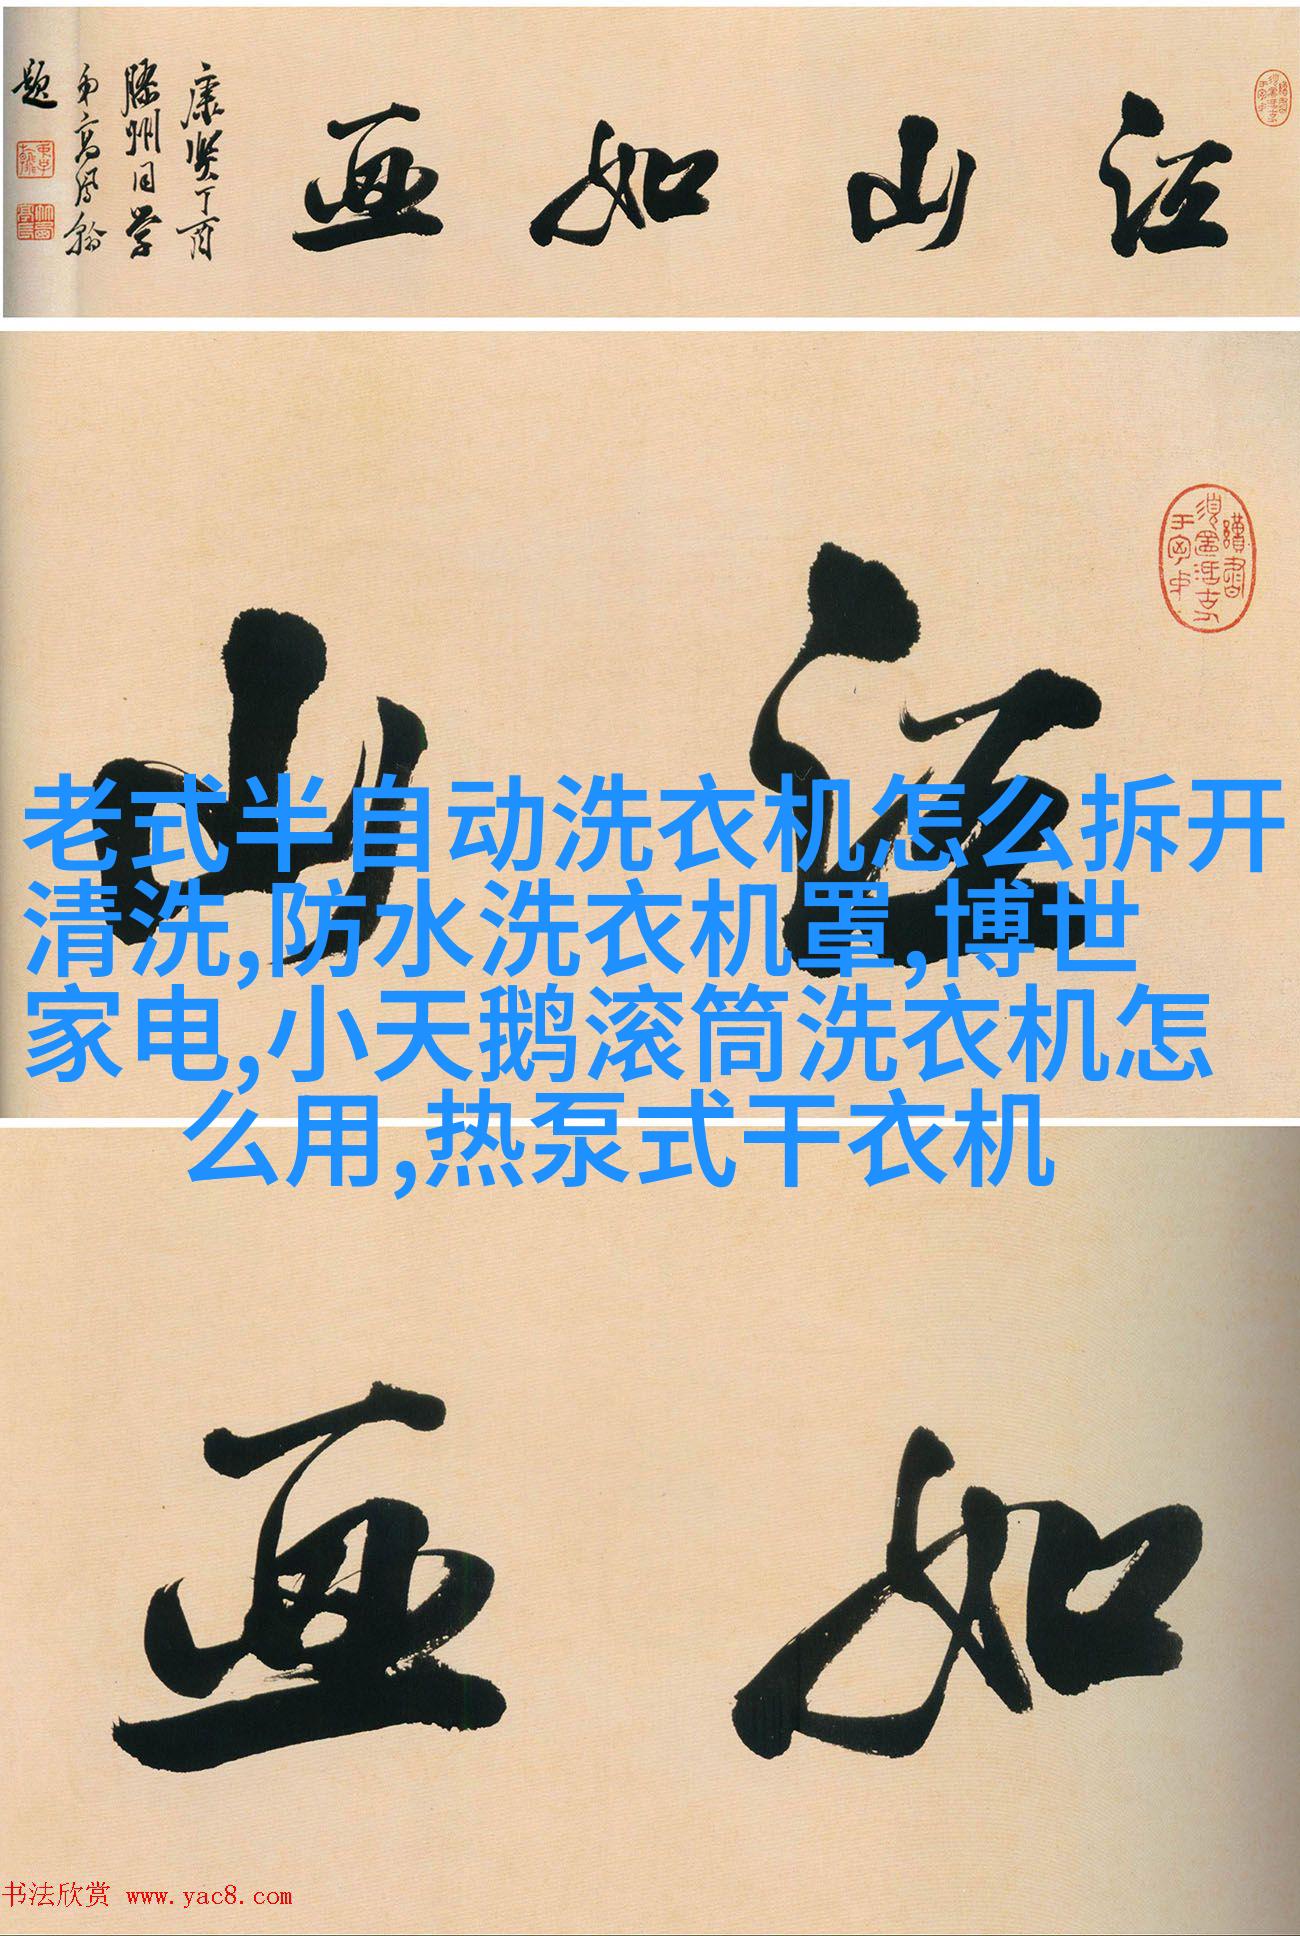 江山如画
康熙丁酉
滕州同学
弟高凤翰
题
江山
如画
老式半自动洗衣机怎么拆开
清洗,防水洗衣机罩,博世
家电,小天鹅滚筒洗衣机怎
么用,热泵式干衣机
书法欣赏 www.yac8.com